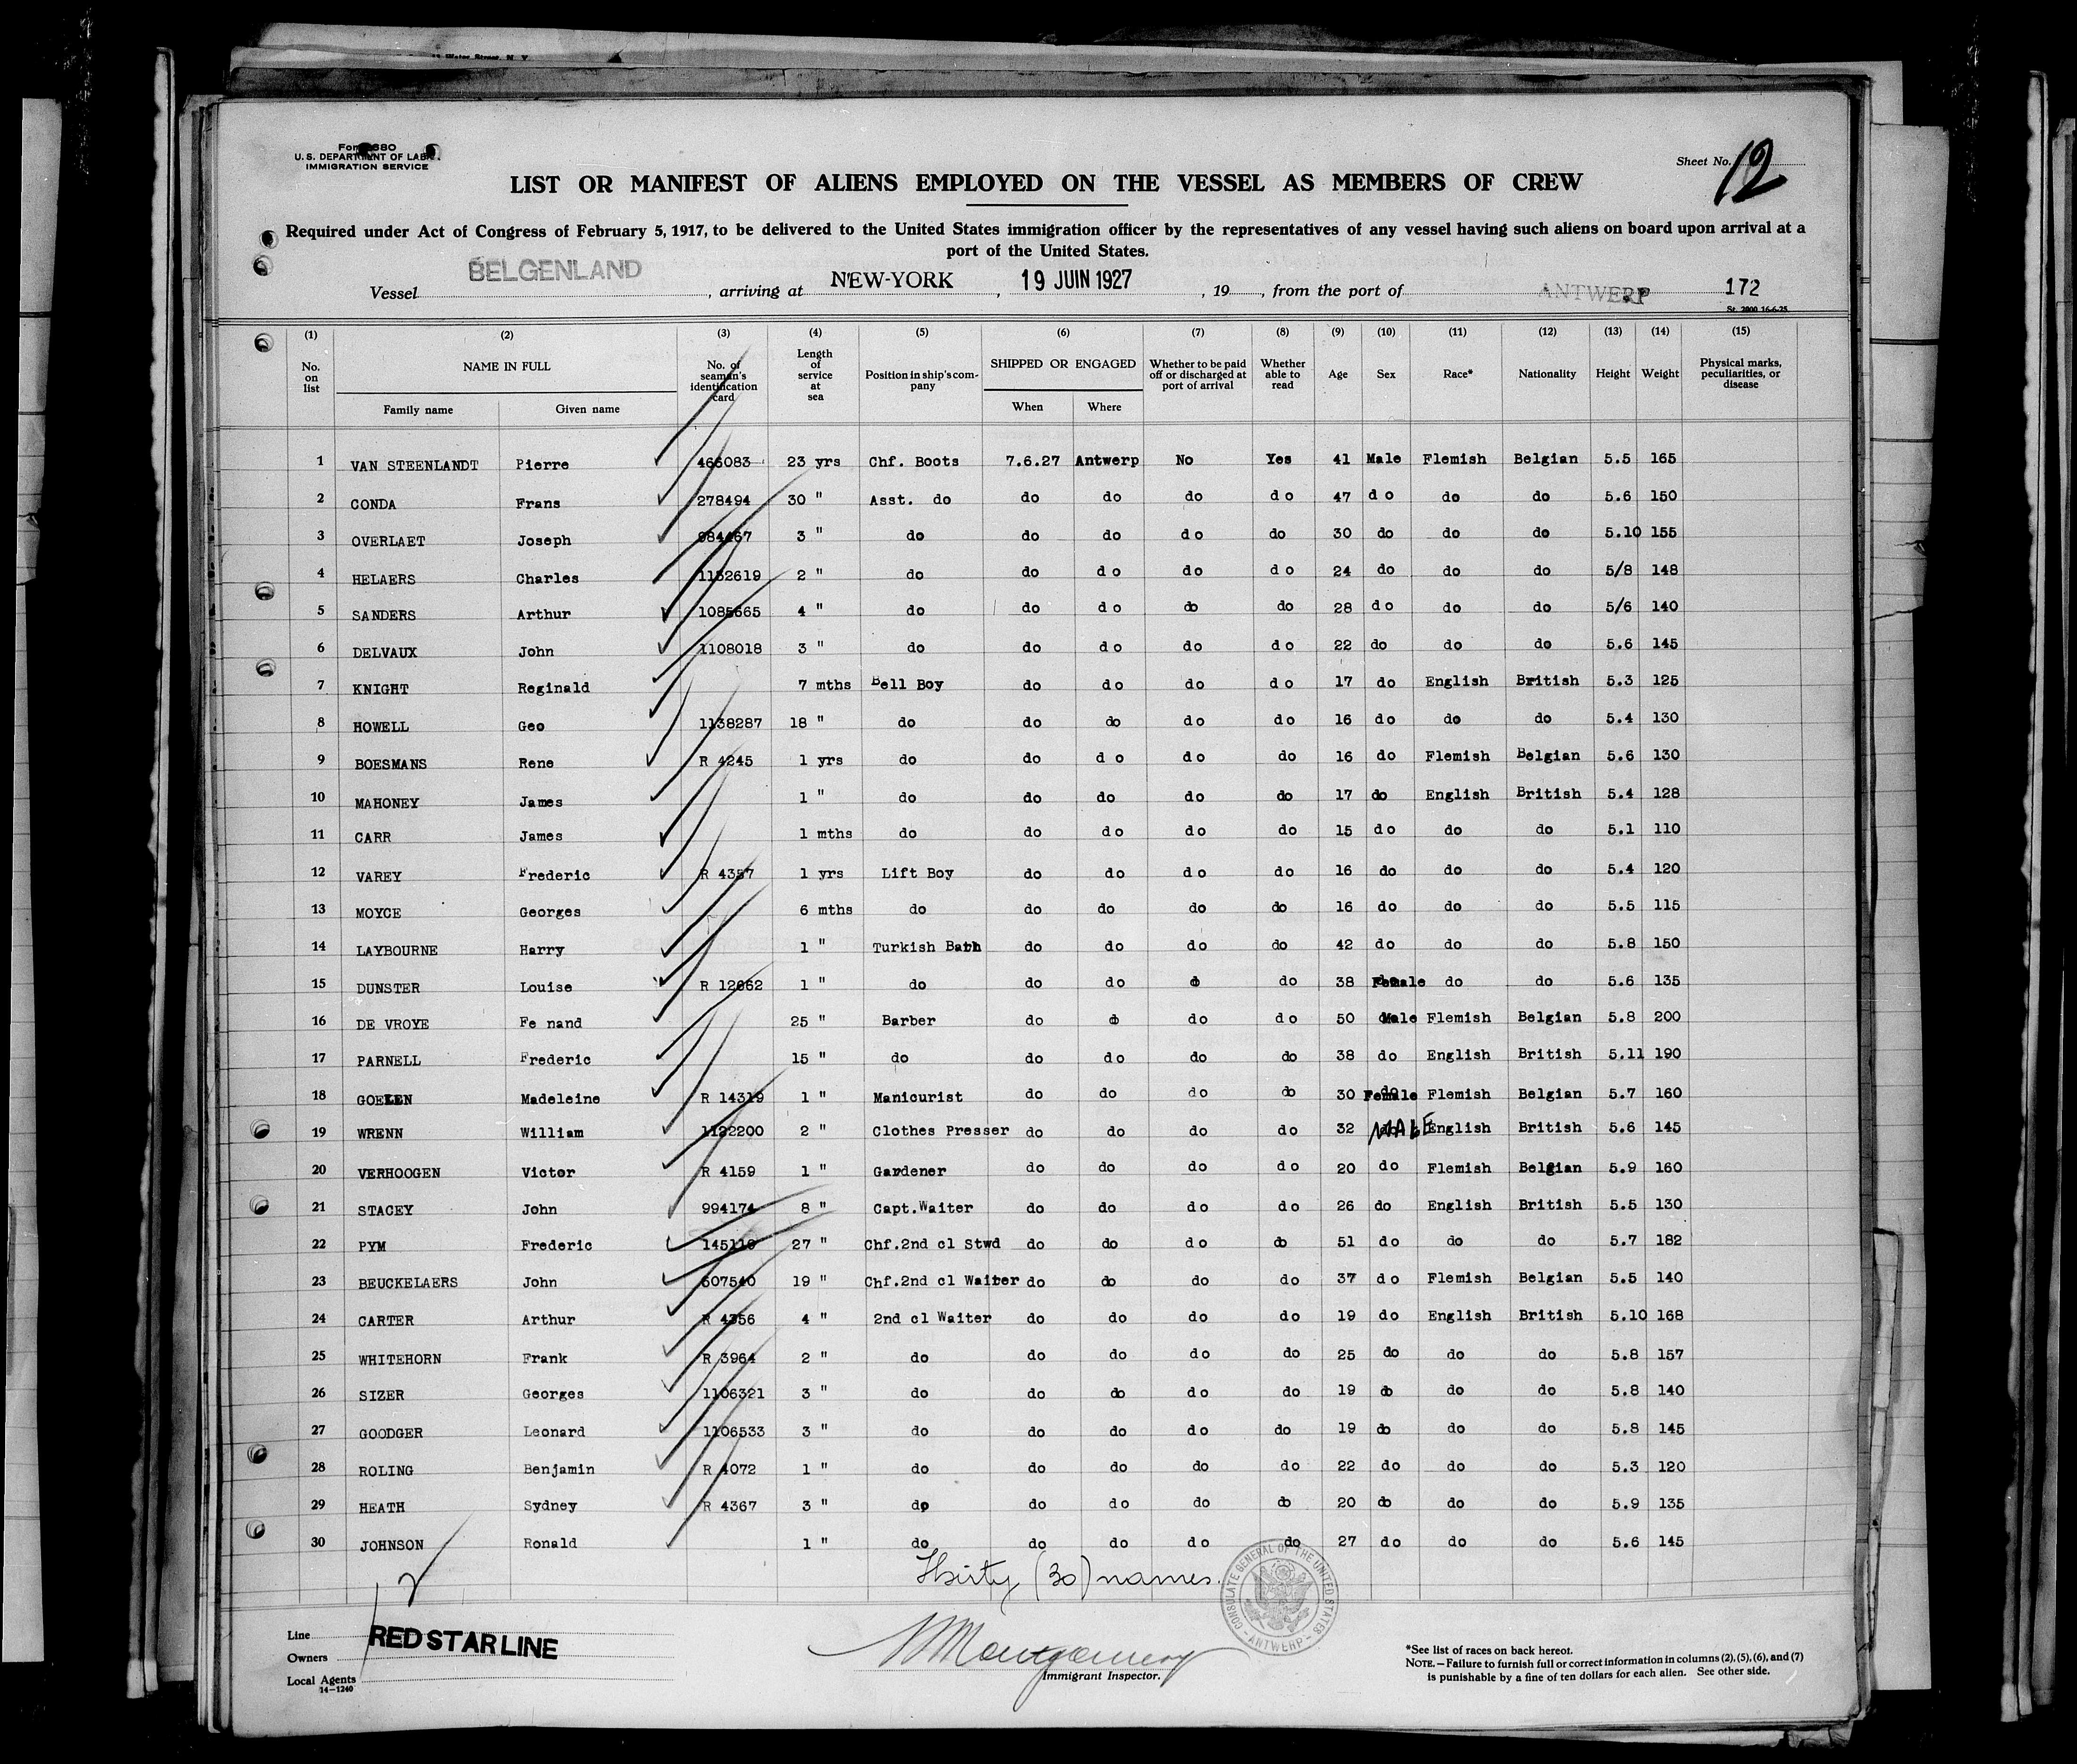 Water Street, N. Y.
U. S. DEPARTMENT OF LABOR
IMMIGRATION SERVICE
Sheet No. 12
LIST OR MANIFEST OF ALIENS EMPLOYED ON THE VESSEL AS MEMBERS OF CREW
Required under Act of Congress of February 5, 1917, to be delivered to the United States immigration officer by the representatives of any vessel having such aliens on board upon arrival at a
port of the United States.
Vessel BELGENLAND, arriving at NEW-YORK, 19 JUIN 1927, 19, from the port of ANTWERP 172
St. 2000 16-6-25
(1) (2) (3) (4) (5) (6) (7) (8) (9) (10) (11) (12) (13) (14) (15)
No. on list NAME IN FULL No. of seaman's identification card Length of service at sea Position in ship's company SHIPPED OR ENGAGED Whether to be paid off or discharged at port of arrival Whether able to read Age Sex Race* Nationality Height Weight Physical marks, peculiarities, or disease
Family name Given name When Where
1 VAN STEENLANDT Pierre 466083 23 yrs Chf. Boots 7.6.27 Antwerp No Yes 41 Male Flemish Belgian 5.5 165
2 CONDA Frans 278494 30 " Asst. do do do do do 47 do do do 5.6 150
3 OVERLAET Joseph 984467 3 " do do do do do 30 do do do 5.10 155
4 HELAERS Charles 1152619 2 " do do do do do 24 do do do 5/8 148
5 SANDERS Arthur 1085665 4 " do do do do do 28 do do do 5/6 140
6 DELVAUX John 1108018 3 " do do do do do 22 do do do 5.6 145
7 KNIGHT Reginald 7 mths Bell Boy do do do do 17 do English British 5.3 125
8 HOWELL Geo 1138287 18 " do do do do do 16 do do do 5.4 130
9 BOESMANS Rene R 4245 1 yrs do do do do do 16 do Flemish Belgian 5.6 130
10 MAHONEY James 1 " do do do do do 17 do English British 5.4 128
11 CARR James 1 mths do do do do do 15 do do do 5.1 110
12 VAREY Frederic R 4357 1 yrs Lift Boy do do do do 16 do do do 5.4 120
13 MOYCE Georges 6 mths do do do do do 16 do do do 5.5 115
14 LAYBOURNE Harry 1 " Turkish Bath do do do do 42 do do do 5.8 150
15 DUNSTER Louise R 12062 1 " do do do do do 38 Female do do 5.6 135
16 DE VROYE Fe nand 25 " Barber do do do do 50 Male Flemish Belgian 5.8 200
17 PARNELL Frederic 15 " do do do do do 38 do English British 5.11 190
18 GOELEN Madeleine R 14319 1 " Manicurist do do do do 30 Female Flemish Belgian 5.7 160
19 WRENN William 1122200 2 " Clothes Presser do do do do 32 MALE English British 5.6 145
20 VERHOOGEN Victor R 4159 1 " Gardener do do do do 20 do Flemish Belgian 5.9 160
21 STACEY John 994174 8 " Capt.Waiter do do do do 26 do English British 5.5 130
22 PYM Frederic 145119 27 " Chf.2nd cl Stwd do do do do 51 do do do 5.7 182
23 BEUCKELAERS John 607540 19 " Chf.2nd cl Waiter do do do do 37 do Flemish Belgian 5.5 140
24 CARTER Arthur R 4356 4 " 2nd cl Waiter do do do do 19 do English British 5.10 168
25 WHITEHORN Frank R 3964 2 " do do do do do 25 do do do 5.8 157
26 SIZER Georges 1106321 3 " do do do do do 19 do do do 5.8 140
27 GOODGER Leonard 1106533 3 " do do do do do 19 do do do 5.8 145
28 ROLING Benjamin R 4072 1 " do do do do do 22 do do do 5.3 120
29 HEATH Sydney R 4367 3 " do do do do do 20 do do do 5.9 135
30 JOHNSON Ronald 1 " do do do do do 27 do do do 5.6 145
Thirty (30) names.
CONSULATE GENERAL OF THE UNITED STATES - ANTWERP -
Line RED STAR LINE
Owners
Local Agents
14-1240
Montgomery
Immigrant Inspector.
*See list of races on back hereof.
NOTE.—Failure to furnish full or correct information in columns (2), (5), (6), and (7)
is punishable by a fine of ten dollars for each alien. See other side.